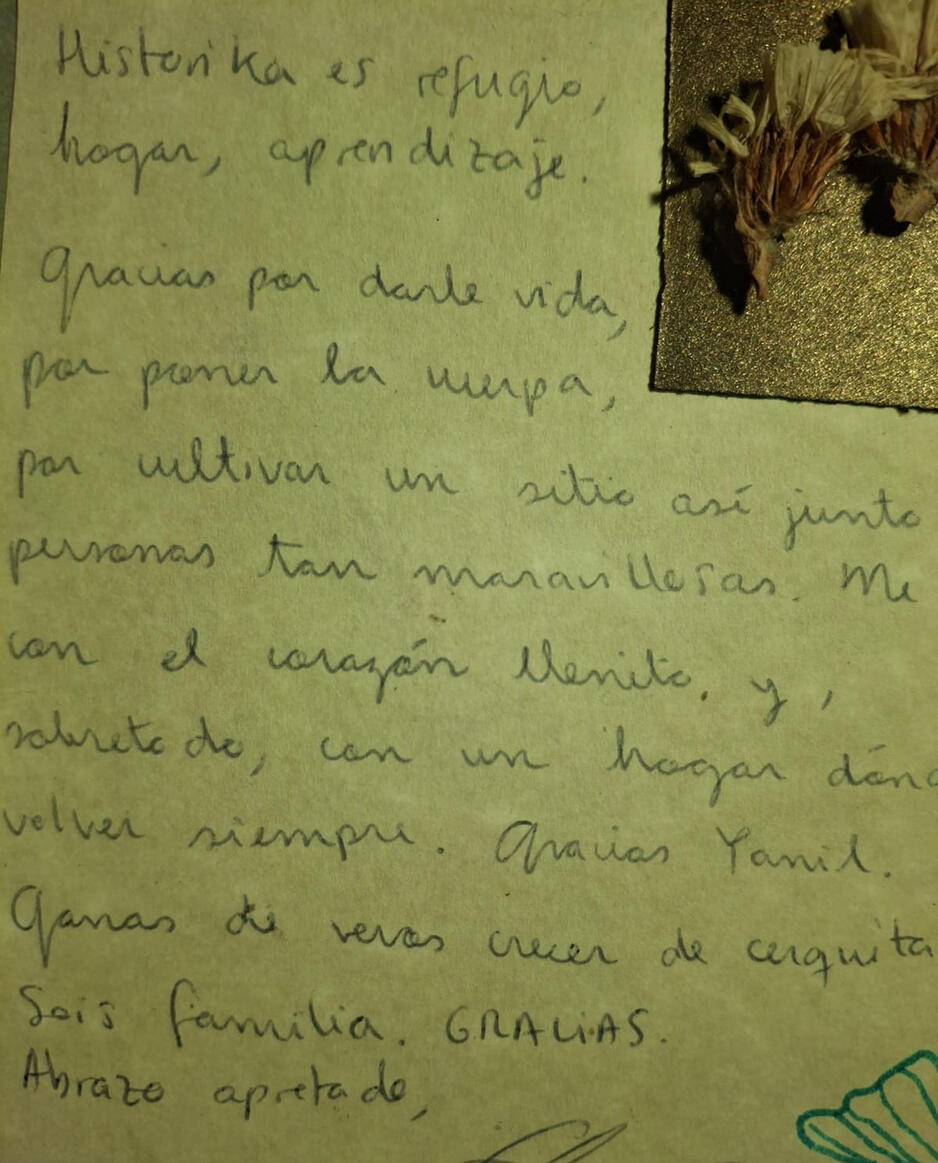 Historika es refugio,
hogar, aprendizaje.
Gracias por darle vida,
por poner la cuerpa,
por cultivar un sitio así junto
personas tan maravillosas. Me
con el corazón llenito, y,
sobretodo, con un hogar dónd
volver siempre. Gracias Yamil.
Ganas de veros crecer de cerquita
Sois familia. GRACIAS.
Abrazo apretado,